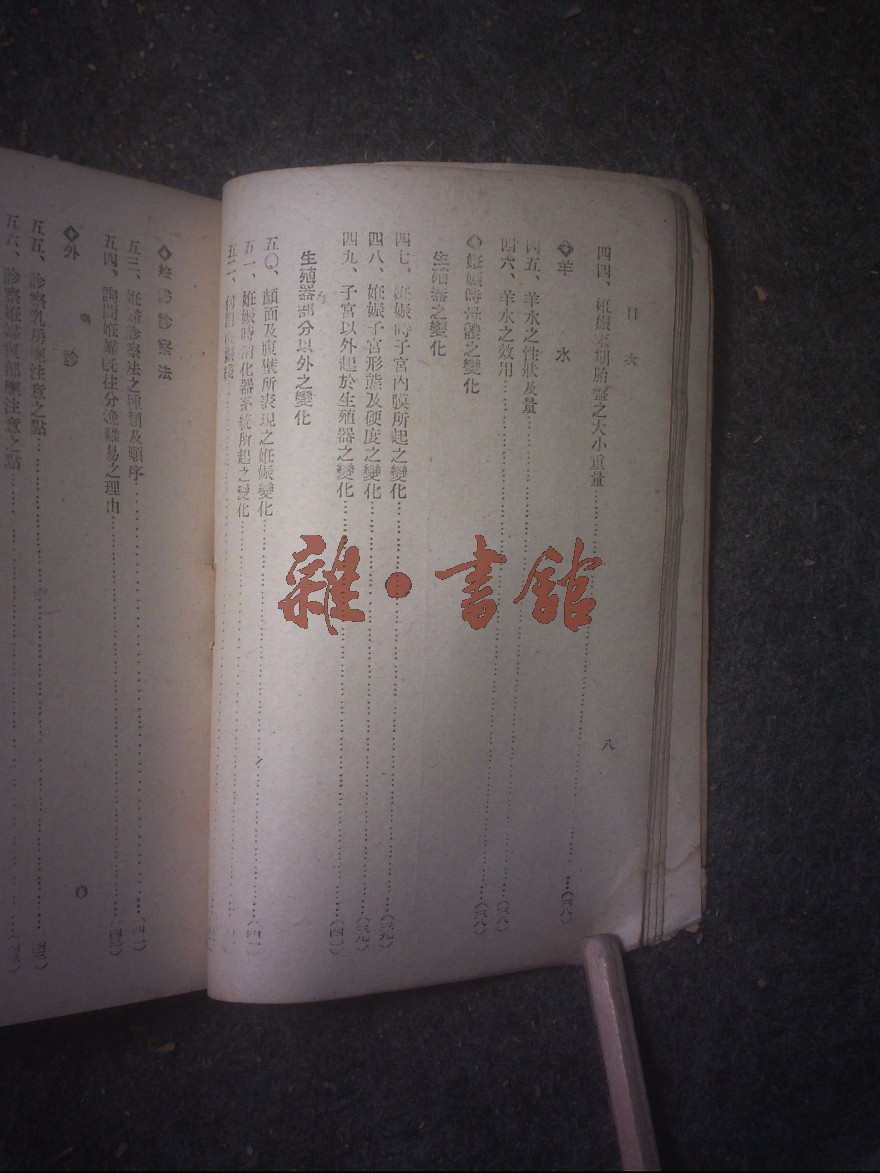 目次
八
四四、姙娠末期胎盤之大小重量……(三八)
◆羊水
四五、羊水之性狀及量……(三八)
四六、羊水之效用……(三八)
◆姙娠時母體之變化
生殖器之變化
四七、姙娠時子宮內膜所起之變化……(三九)
四八、姙娠子宮形態及硬度之變化……(三九)
四九、子宮以外起於生殖器之變化……(四〇)
生殖器部分以外之變化
五〇、顏面及腹壁所表現之姙娠變化
五一、姙娠時消化器系統所起之變化……(四一)
五二、
◆姙婦診察法
五三、姙婦診察法之種類及順序
五四、詢問姙婦既往分娩難易之理由
◆外診
五五、診察乳房應注意之點
五六、診察姙婦腹部應注意之點
雜·書館